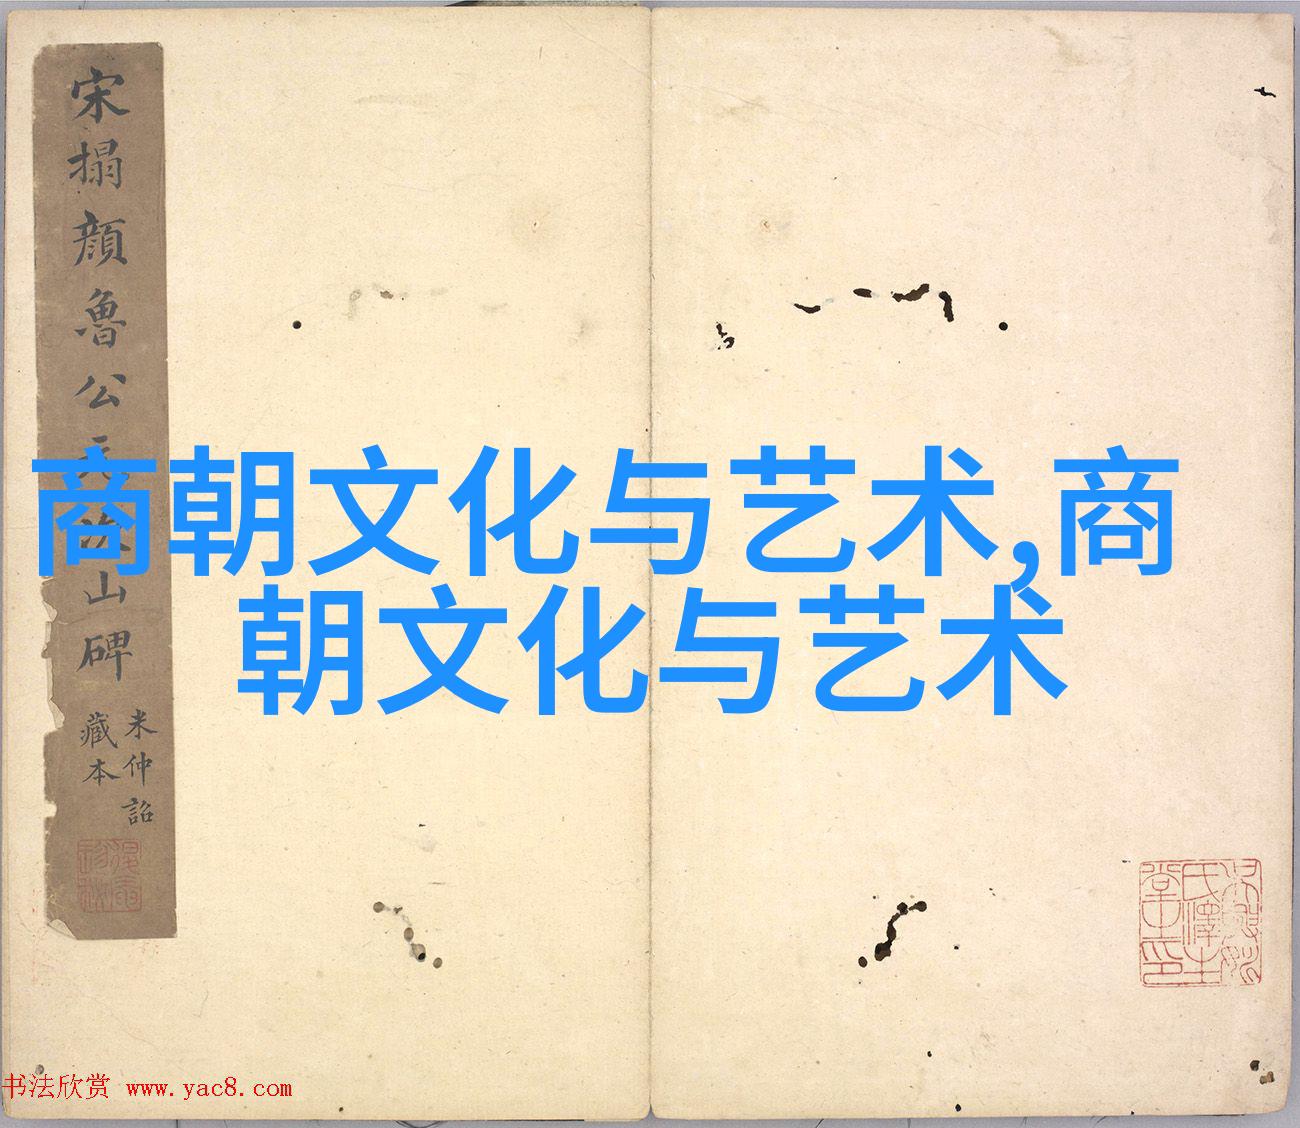 宋搨顔魯公元次山碑
米仲詔
藏本
商朝文化与艺术,商
朝文化与艺术
书法欣赏 www.yac8.com